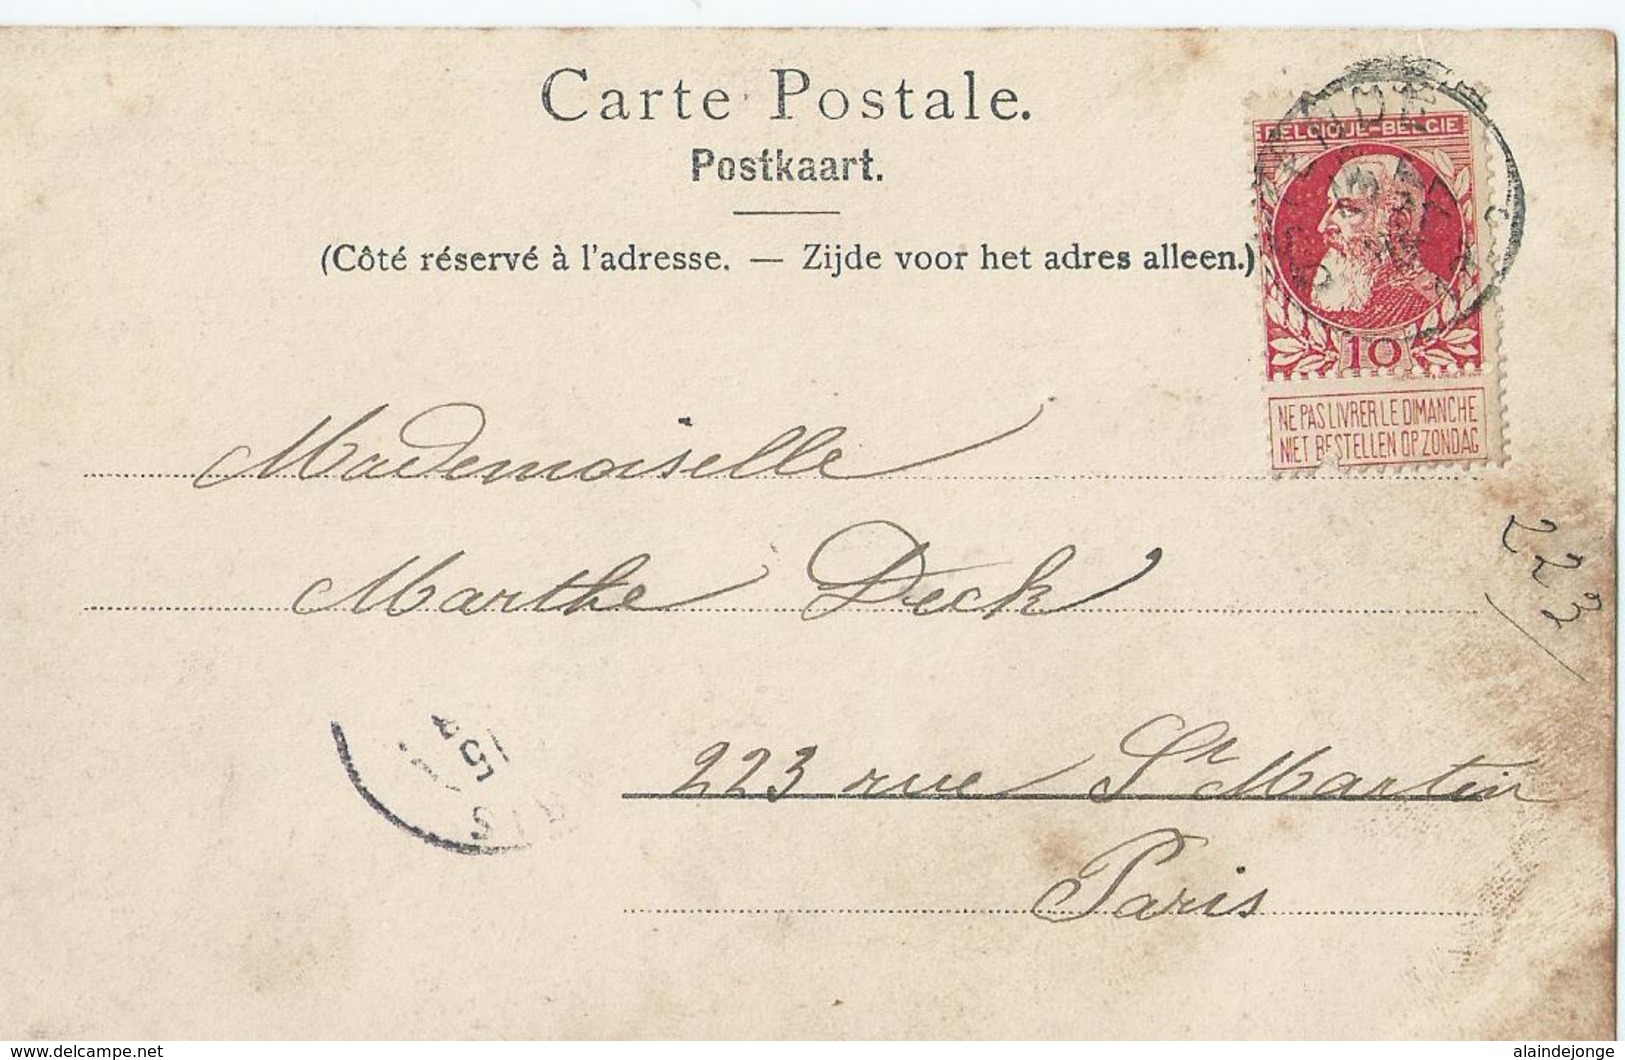 Carte Postale.
Postkaart.
(Côté réservé à l'adresse. — Zijde voor het adres alleen.)
BELGIQUE-BELGIE
10
NE PAS LIVRER LE DIMANCHE
NIET BESTELLEN OP ZONDAG
Mademoiselle
Marthe Deck
223
223 rue St Martin
Paris
delcampe.net
alaindejonge